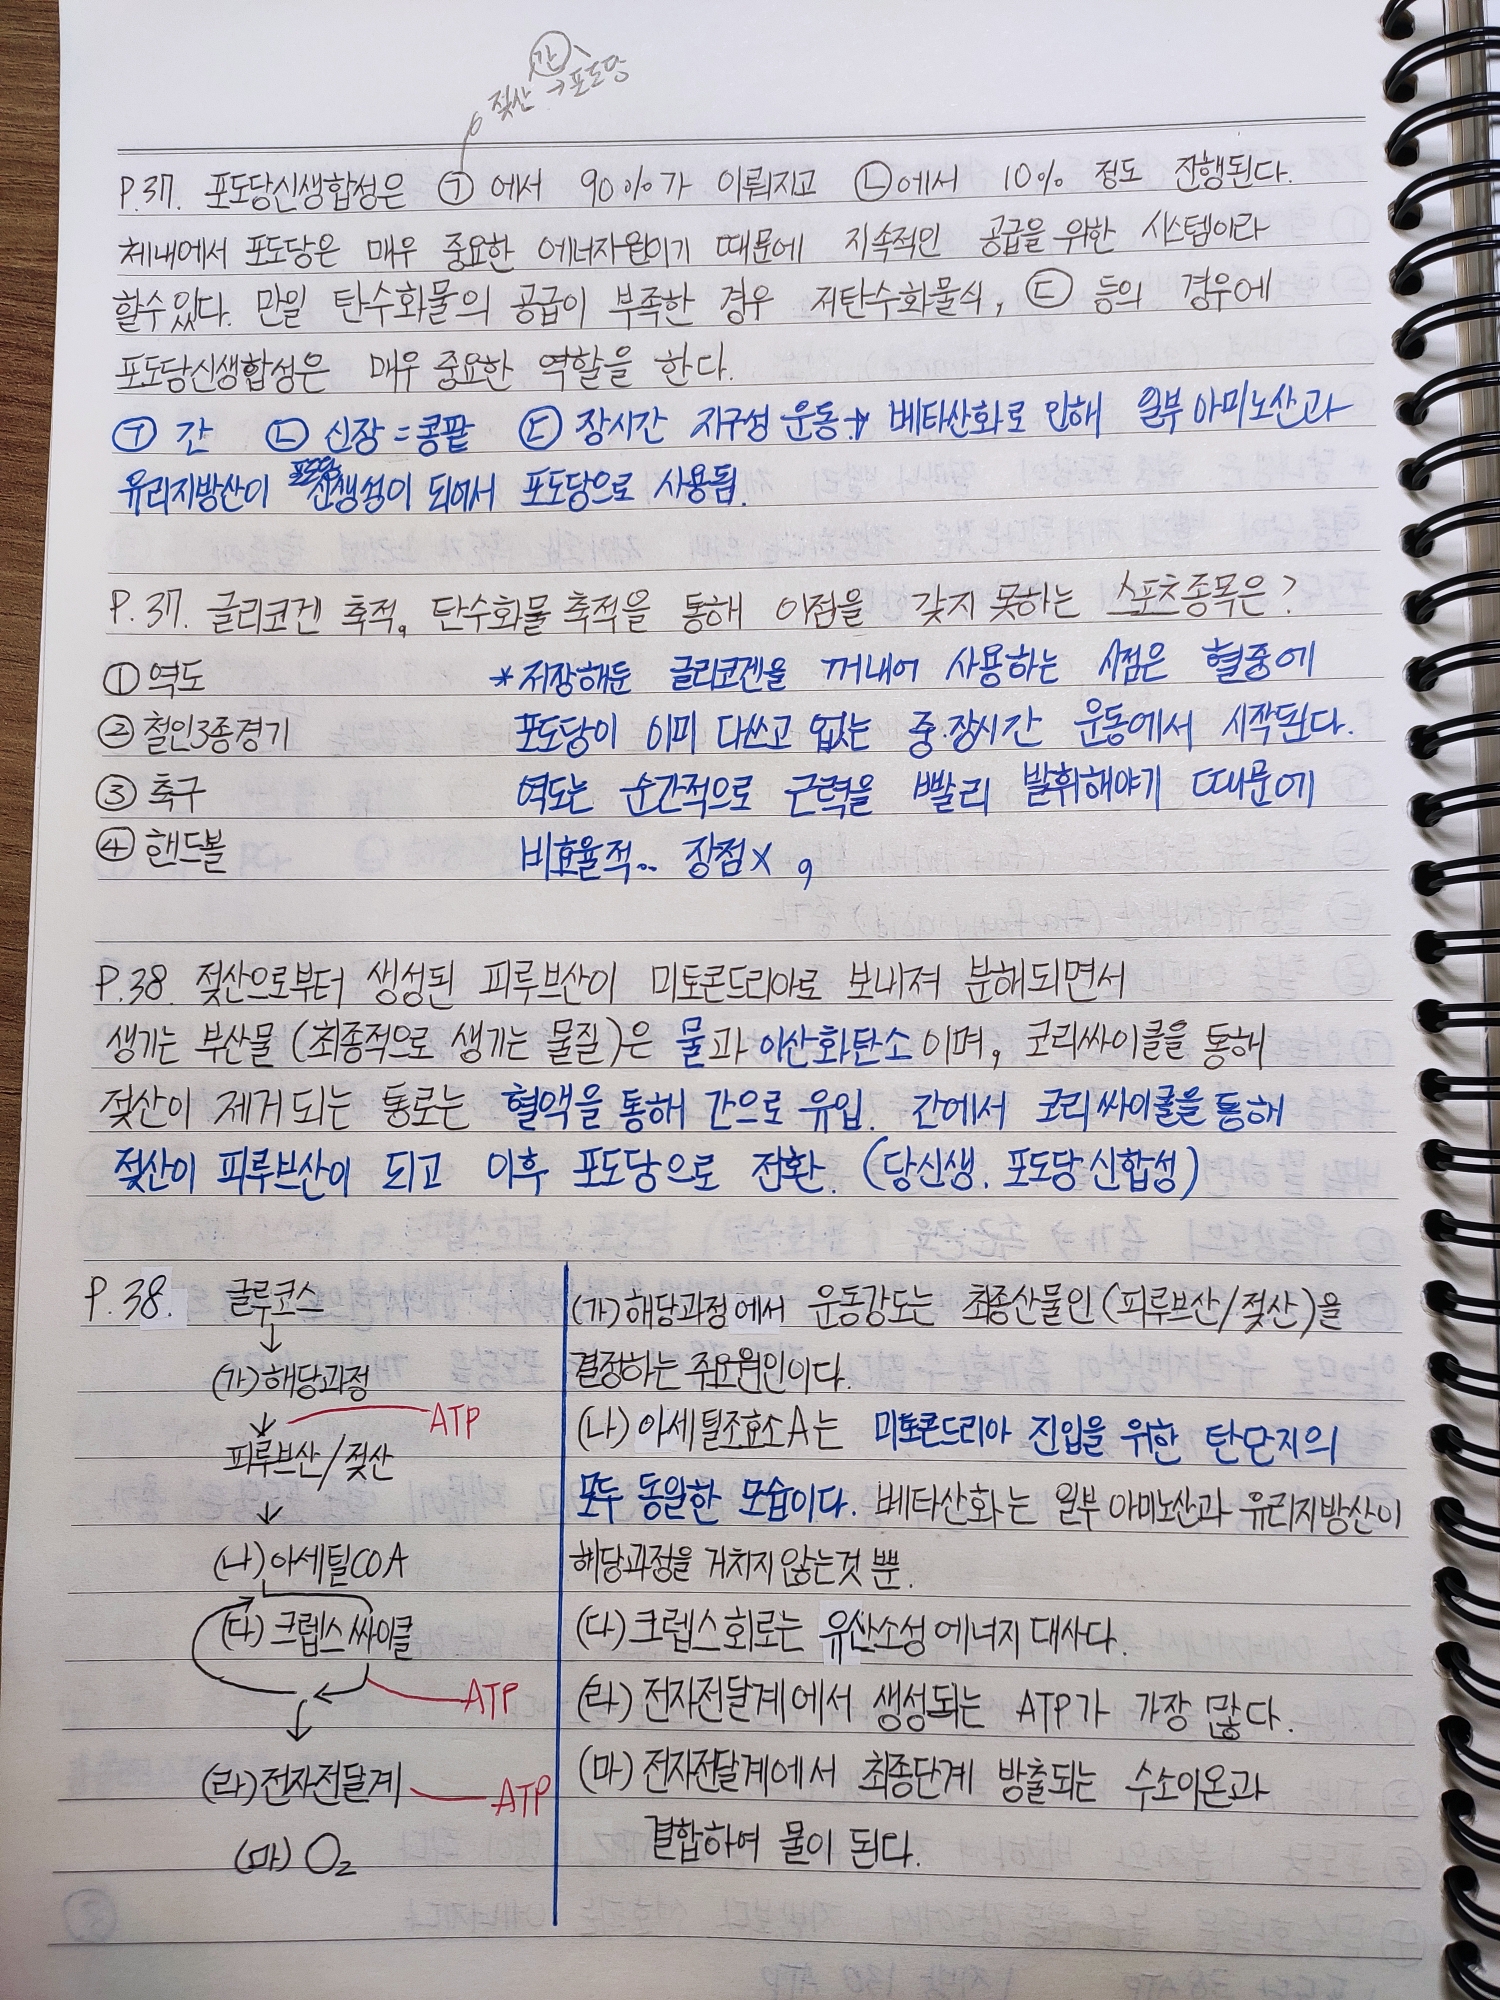 간
젖산 → 포도당
P.37. 포도당신생합성은 ㉠에서 90%가 이뤄지고 ㉡에서 10% 정도 진행된다.
체내에서 포도당은 매우 중요한 에너자원이기 때문에 지속적인 공급을 위한 시스템이라
할수 있다. 만일 탄수화물의 공급이 부족한 경우 저탄수화물식, ㉢ 등의 경우에
포도당신생합성은 매우 중요한 역할을 한다.
㉠ 간 ㉡ 신장 = 콩팥 ㉢ 장시간 지구성 운동 → 베타산화로 인해 일부 아미노산과
유리지방산이 포도당 신생성이 되어서 포도당으로 사용됨.
P.37. 글리코겐 축적, 탄수화물 축적을 통해 이점을 갖지 못하는 스포츠종목은?
① 역도
* 저장해둔 글리코겐을 꺼내어 사용하는 시점은 혈중에
② 철인3종경기
포도당이 이미 다쓰고 없는 중·장시간 운동에서 시작된다.
③ 축구
역도는 순간적으로 근력을 빨리 발휘해야기 때문에
④ 핸드볼
비효율적.. 장점X,
P.38. 젖산으로부터 생성된 피루브산이 미토콘드리아로 보내져 분해되면서
생기는 부산물 (최종적으로 생기는 물질)은 물과 이산화탄소이며, 코리싸이클을 통해
젖산이 제거되는 통로는 혈액을 통해 간으로 유입. 간에서 코리싸이클을 통해
젖산이 피루브산이 되고 이후 포도당으로 전환. (당신생. 포도당신합성)
P.38. 글루코스
↓
(가)해당과정
↓ ATP
피루브산/젖산
↓
(나)아세틸COA
(다) 크렙스싸이클
ATP
↓
(라)전자전달계 ATP
(마) O₂
(가)해당과정에서 운동강도는 최종산물인(피루브산/젖산)을
결정하는 주요원인이다.
(나) 아세틸조효소A는 미토콘드리아 진입을 위한 탄단지의
모두 동일한 모습이다. 베타산화는 일부 아미노산과 유리지방산이
해당과정을 거치지 않는것 뿐.
(다)크렙스회로는 유산소성에너지 대사다.
(라)전자전달계에서 생성되는 ATP가 가장 많다.
(마)전자전달계에서 최종단계 방출되는 수소이온과
결합하여 물이 된다.